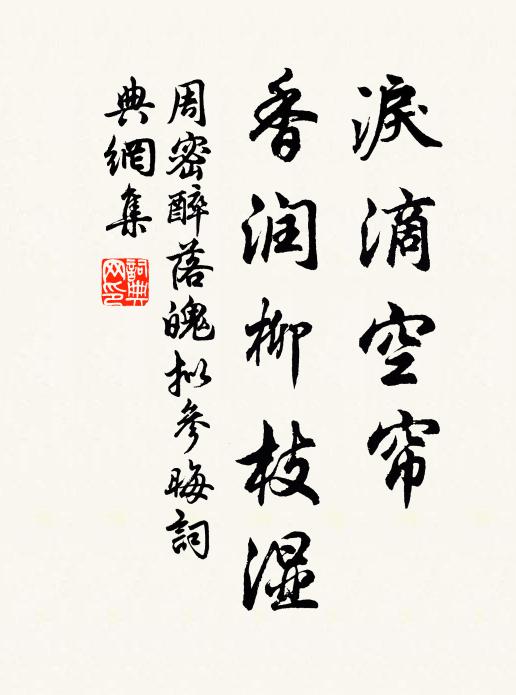 淚滴空帘
香润柳枝湿
周密醉落魄拟參晦詞
典網集
詞典网印